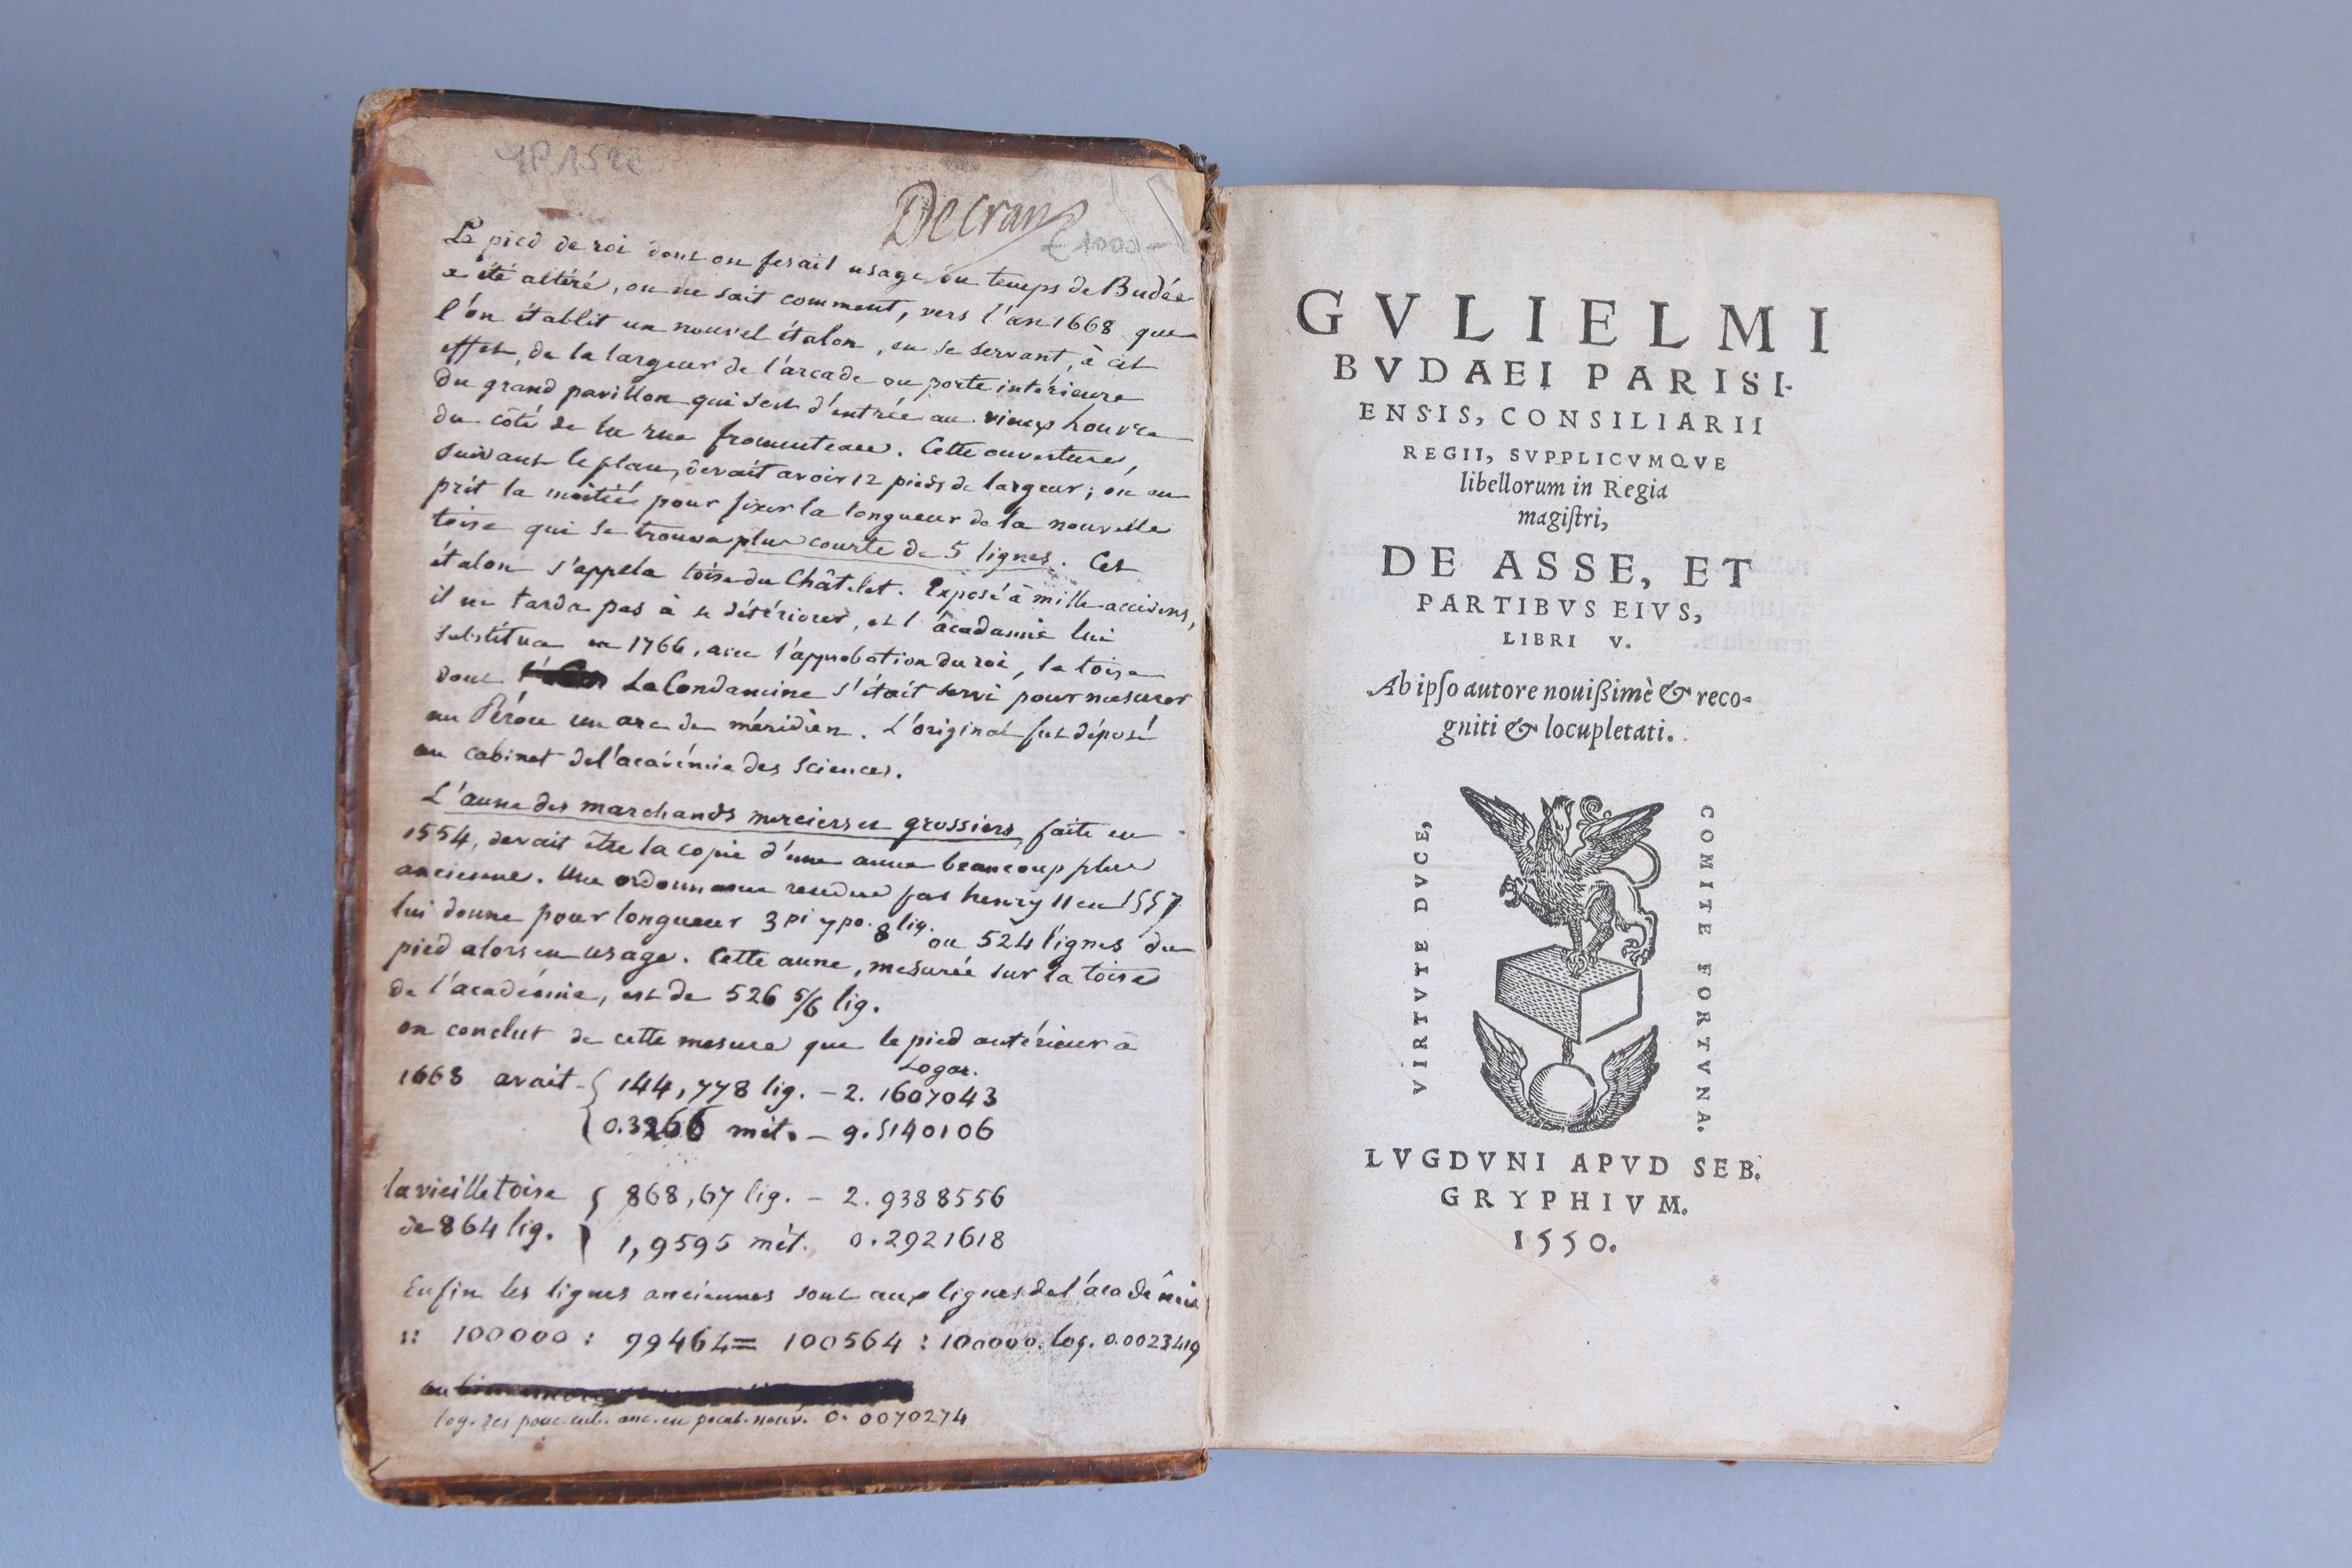 Decrans
€ 1000 -
Le pied de roi dont on fesait usage du temps de Budée
a été altéré, on ne sait comment, vers l'an 1668 que
l'on établit un nouvel étalon, en se servant, à cet
effet, de la largeur de l'arcade ou porte intérieure
du grand pavillon qui sert d'entrée au vieux Louvre
du côté de la rue fromenteau. Cette ouverture,
suivant le plan, devait avoir 12 pieds de largeur; on en
prit la moitié pour fixer la longueur de la nouvelle
toise qui se trouva plus courte de 5 lignes. Cet
étalon s'appela toise du Châtelet. Exposé à mille accidens,
il ne tarda pas à se détériorer, et l'académie lui
substitua en 1766, avec l'approbation du roi, la toise
dont La Condamine s'était servi pour mesurer
au Pérou un arc de méridien. L'original fut déposé
au cabinet de l'académie des Sciences.
L'aune des marchands merciers et grossiers, faite en
1554, devait être la copie d'une aune beaucoup plus
ancienne. Une ordonnance rendue par henry II en 1557
lui donne pour longueur 3 pi 7 po. 8 lig. ou 524 lignes du
pied alors en usage. Cette aune, mesurée sur la toise
de l'académie, est de 526 5/6 lig.
on conclut de cette mesure que le pied antérieur à
Logar.
1668 avait { 144,778 lig. - 2. 1607043
0.3266 mèt. - 9.5140106
la vieille toise { 868,67 lig. - 2. 9388556
de 864 lig. 1,9595 mèt. 0.2921618
Enfin les lignes anciennes sont aux lignes de l'académie
:: 100000 : 99464 = 100564 : 100000. log. 0.0023419
ou
log. des pouc. cub. anc. en po cub. nouv. 0.0070274
GVLIELMI
BVDAEI PARISI-
ENSIS, CONSILIARII
REGII, SVPPLICVMQVE
libellorum in Regia
magiſtri,
DE ASSE, ET
PARTIBVS EIVS,
LIBRI V.
Ab ipſo autore nouißimè & reco-
gniti & locupletati.
VIRTVTE DVCE,
COMITE FORTVNA.
LVGDVNI APVD SEB.
GRYPHIVM.
1550.